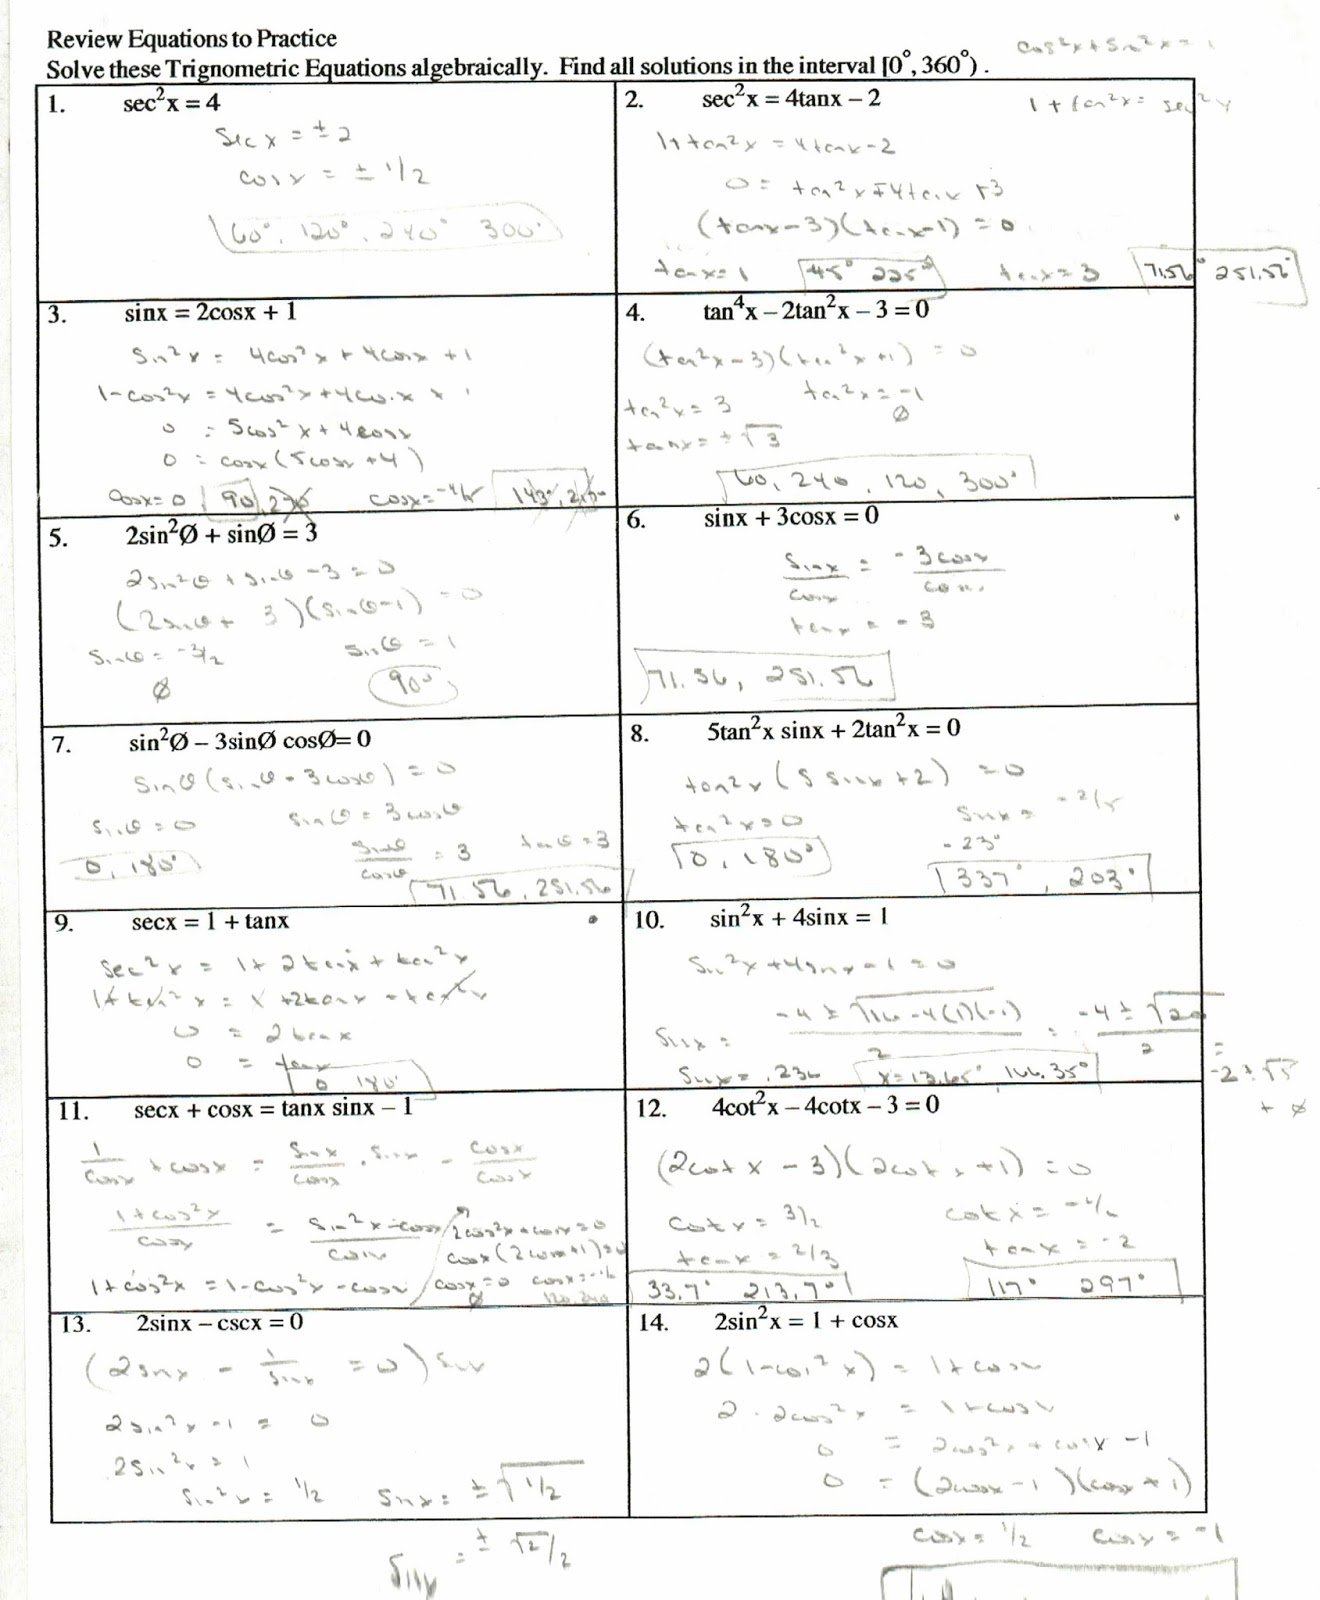 Review Equations to Practice
cos²x + sin²x = 1
Solve these Trignometric Equations algebraically. Find all solutions in the interval [0°, 360°).
1. sec²x = 4
sec x = ± 2
cos x = ± 1/2
60°, 120°, 240° 300°
2. sec²x = 4tanx – 2
1 + tan²x = sec²x
1 + tan²x = 4tanx - 2
0 = tan²x - 4tanx + 3
(tanx - 3)(tanx - 1) = 0
tanx = 1 45° 225° tanx = 3 71.56° 251.56°
3. sinx = 2cosx + 1
sin²x = 4cos²x + 4cosx + 1
1 - cos²x = 4cos²x + 4cosx + 1
0 = 5cos²x + 4cosx
0 = cosx (5cosx + 4)
cosx = 0 90, 270 cosx = -4/5 143°,
4. tan⁴x – 2tan²x – 3 = 0
(tan²x - 3)(tan²x + 1) = 0
tan²x = 3 tan²x = -1
Ø
tanx = ± √3
60, 240, 120, 300°
5. 2sin²Ø + sinØ = 3
2sin²θ + sinθ - 3 = 0
(2sinθ + 3)(sinθ - 1) = 0
sinθ = -3/2 sinθ = 1
Ø 90°
6. sinx + 3cosx = 0
sinx/cosx = -3cosx/cosx
tanx = -3
71.56, 251.56
7. sin²Ø – 3sinØ cosØ= 0
sinθ (sinθ - 3cosθ) = 0
sinθ = 0 sinθ = 3cosθ
0, 180° sinθ/cosθ = 3 tanθ = 3
71.56, 251.56
8. 5tan²x sinx + 2tan²x = 0
tan²x (5 sinx + 2) = 0
tan²x = 0 sinx = -2/5
0, 180° -23°
337°, 203°
9. secx = 1 + tanx
sec²x = 1 + 2tanx + tan²x
1 + tan²x = 1 + 2tanx + tan²x
0 = 2tanx
0 = tanx
0 180°
10. sin²x + 4sinx = 1
sin²x + 4sinx - 1 = 0
sinx = -4 ± √16 - 4(1)(-1) / 2 = -4 ± √20 / 2 = -2 ± √5
sinx = .236 x = 13.65°, 166.35°
+ Ø
11. secx + cosx = tanx sinx – 1
1/cosx + cosx = sinx/cosx · sinx - cosx/cosx
1 + cos²x/cosx = sin²x - cosx/cosx
1 + cos²x = 1 - cos²x - cosx
2cos²x + cosx = 0
cosx (2cosx + 1) = 0
cosx = 0 cosx = -1/2
Ø 120, 240
12. 4cot²x – 4cotx – 3 = 0
(2cotx - 3)(2cotx + 1) = 0
cotx = 3/2 cotx = -1/2
tanx = 2/3 tanx = -2
33.7° 213.7° 117° 297°
13. 2sinx – cscx = 0
(2sinx - 1/sinx = 0) sinx
2sin²x - 1 = 0
2sin²x = 1
sin²x = 1/2 sinx = ± √1/2
= ± √2/2
14. 2sin²x = 1 + cosx
2(1 - cos²x) = 1 + cosx
2 - 2cos²x = 1 + cosx
0 = 2cos²x + cosx - 1
0 = (2cosx - 1)(cosx + 1)
cosx = 1/2 cosx = -1